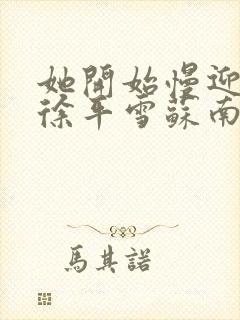 她開始慢迎
徐平雪蘇南
馬其諾